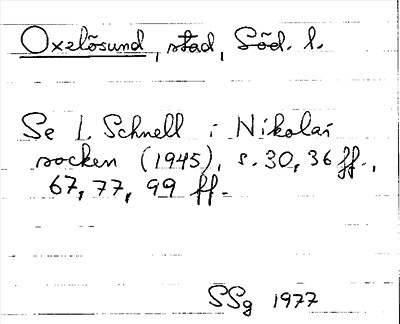 Oxelösund, stad, Söd. l.
Se I. Schnell i Nikolai
socken (1945), s. 30, 36 ff.,
67, 77, 99 ff.
SSg 1977